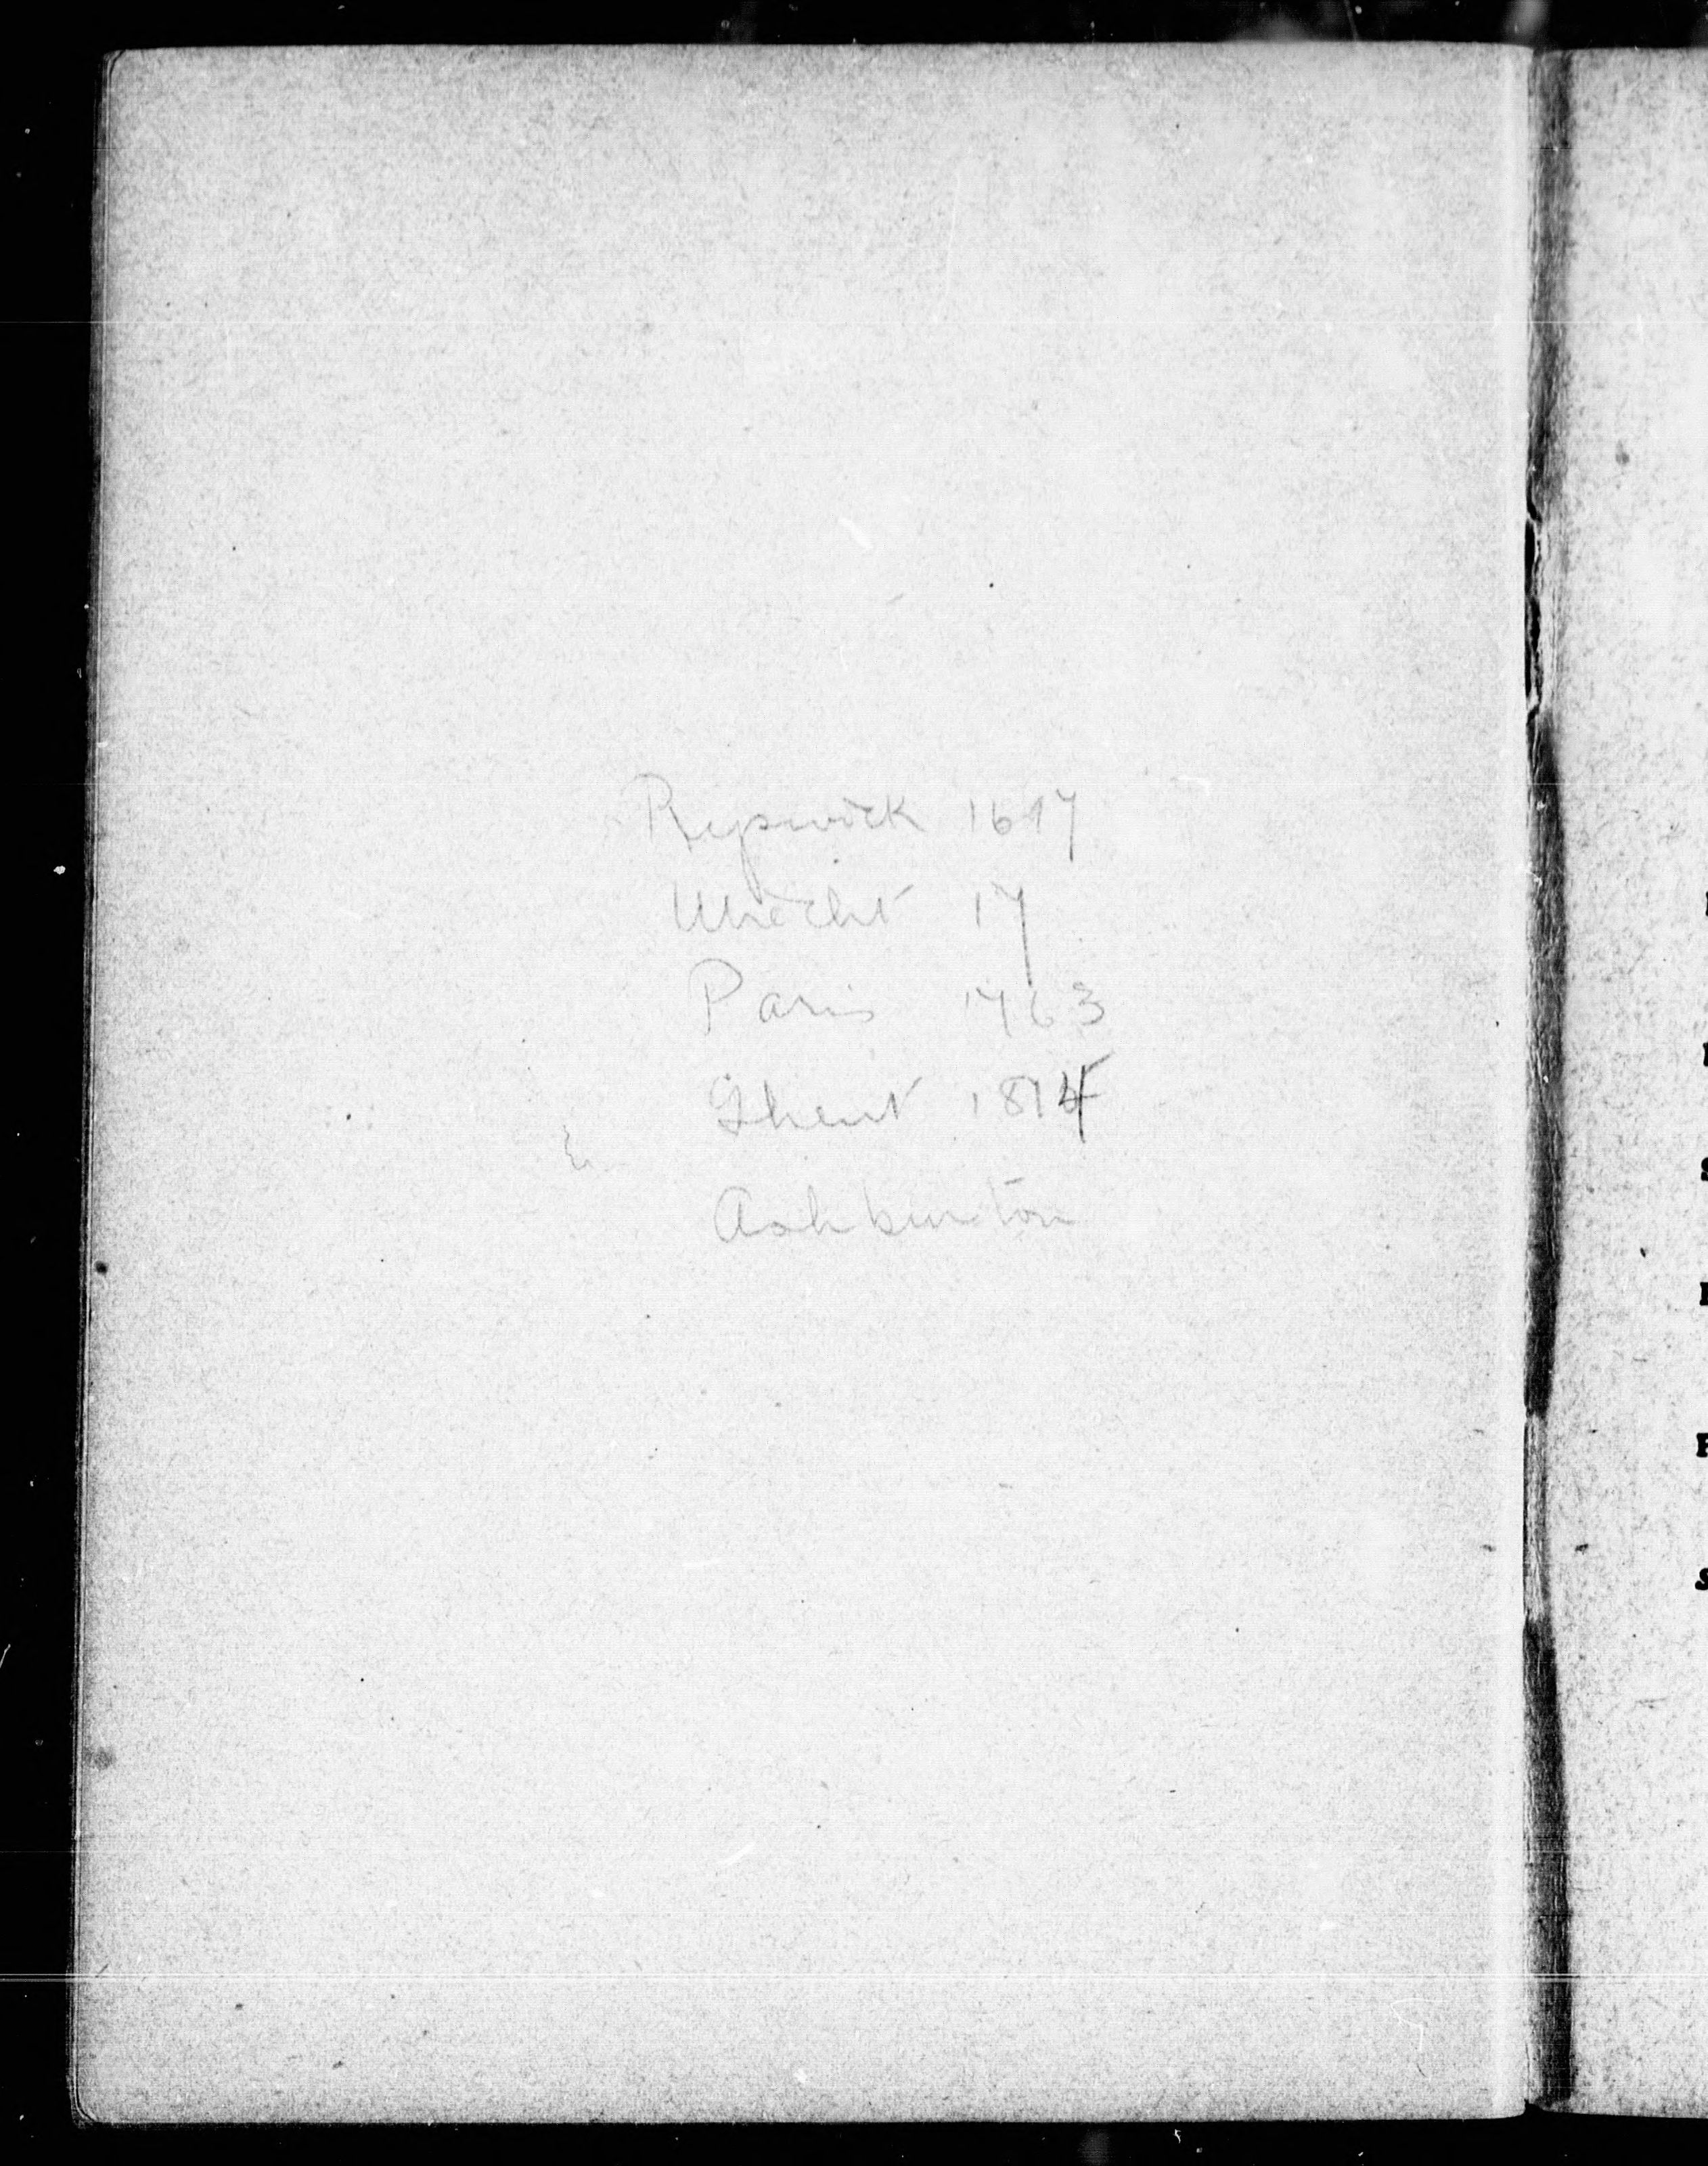 Rypswick 1697
Utrecht 17
Paris 1763
Ghent 1814
Ashburton